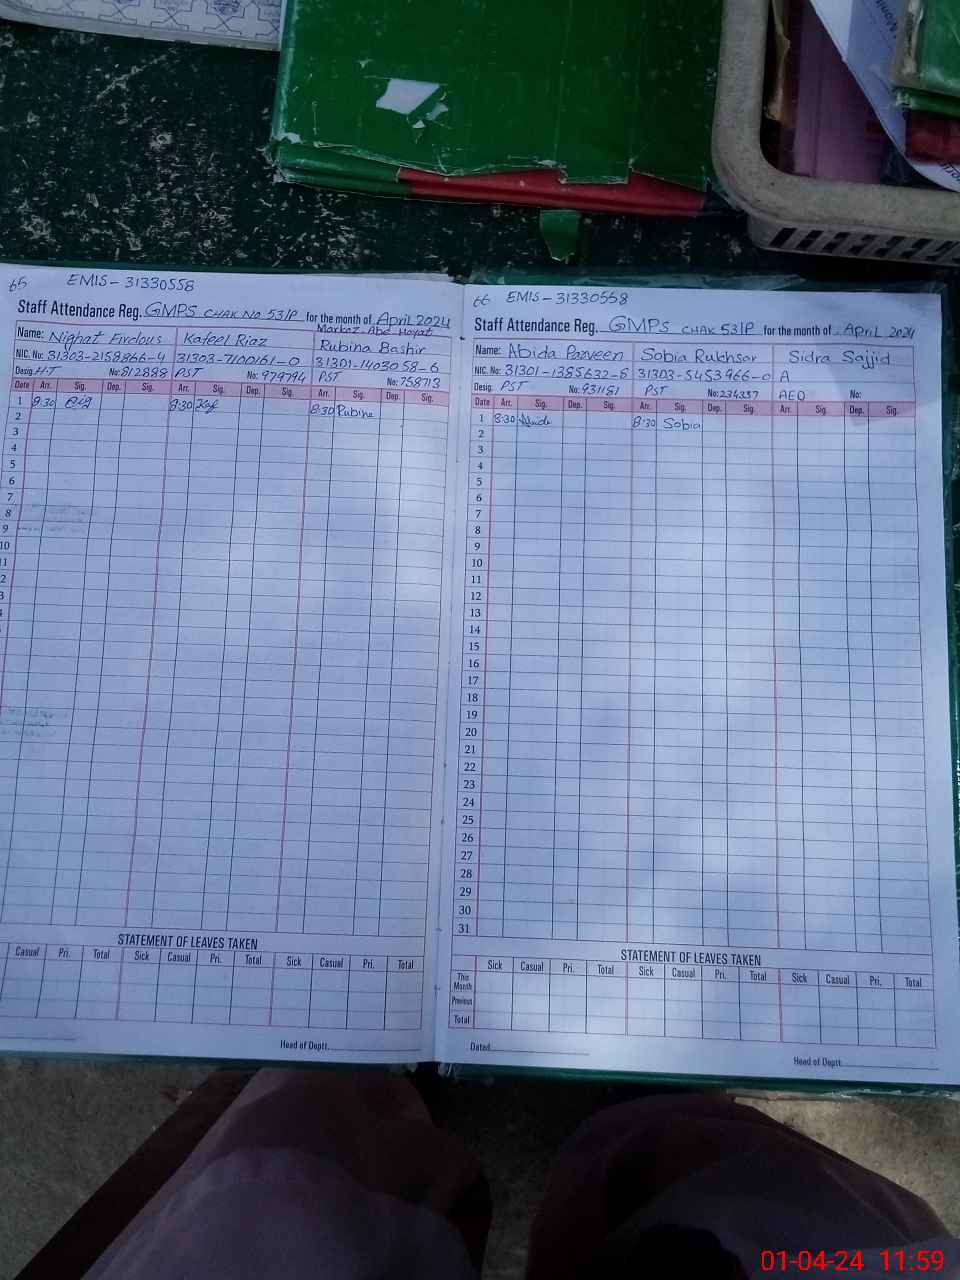 65 EMIS - 31330558
Staff Attendance Reg. GMPS CHAK NO 53/P for the month of April 2024
Markaz Abd Hayat
Name: Nighat Firdous Kafeel Riaz Rubina Bashir
NIC. No: 31303-2158866-4 31303-7100161-0 31301-1403058-6
Desig. H-T No: 812888 PST No: 979794 PST No: 758713
Date Arr. Sig. Dep. Sig. Arr. Sig. Dep. Sig. Arr. Sig. Dep. Sig.
1 8:30 8:30 8:30 Rubina
2
3
4
5
6
7
8
9
10
11
2
3
STATEMENT OF LEAVES TAKEN
Casual Pri. Total Sick Casual Pri. Total Sick Casual Pri. Total
Head of Deptt.
66 EMIS - 31330558
Staff Attendance Reg. GMPS CHAK 53/P for the month of April 2024
Name: Abida Parveen Sobia Rukhsar Sidra Sajjid
NIC. No: 31301-1385632-8 31303-5453966-0 A
Desig. PST No: 931181 PST No: 234357 AEO No:
Date Arr. Sig. Dep. Sig. Arr. Sig. Dep. Sig. Arr. Sig. Dep. Sig.
1 8:30 Abida 8:30 Sobia
2
3
4
5
6
7
8
9
10
11
12
13
14
15
16
17
18
19
20
21
22
23
24
25
26
27
28
29
30
31
STATEMENT OF LEAVES TAKEN
Sick Casual Pri. Total Sick Casual Pri. Total Sick Casual Pri. Total
This Month
Previous
Total
Dated
Head of Deptt.
01-04-24 11:59